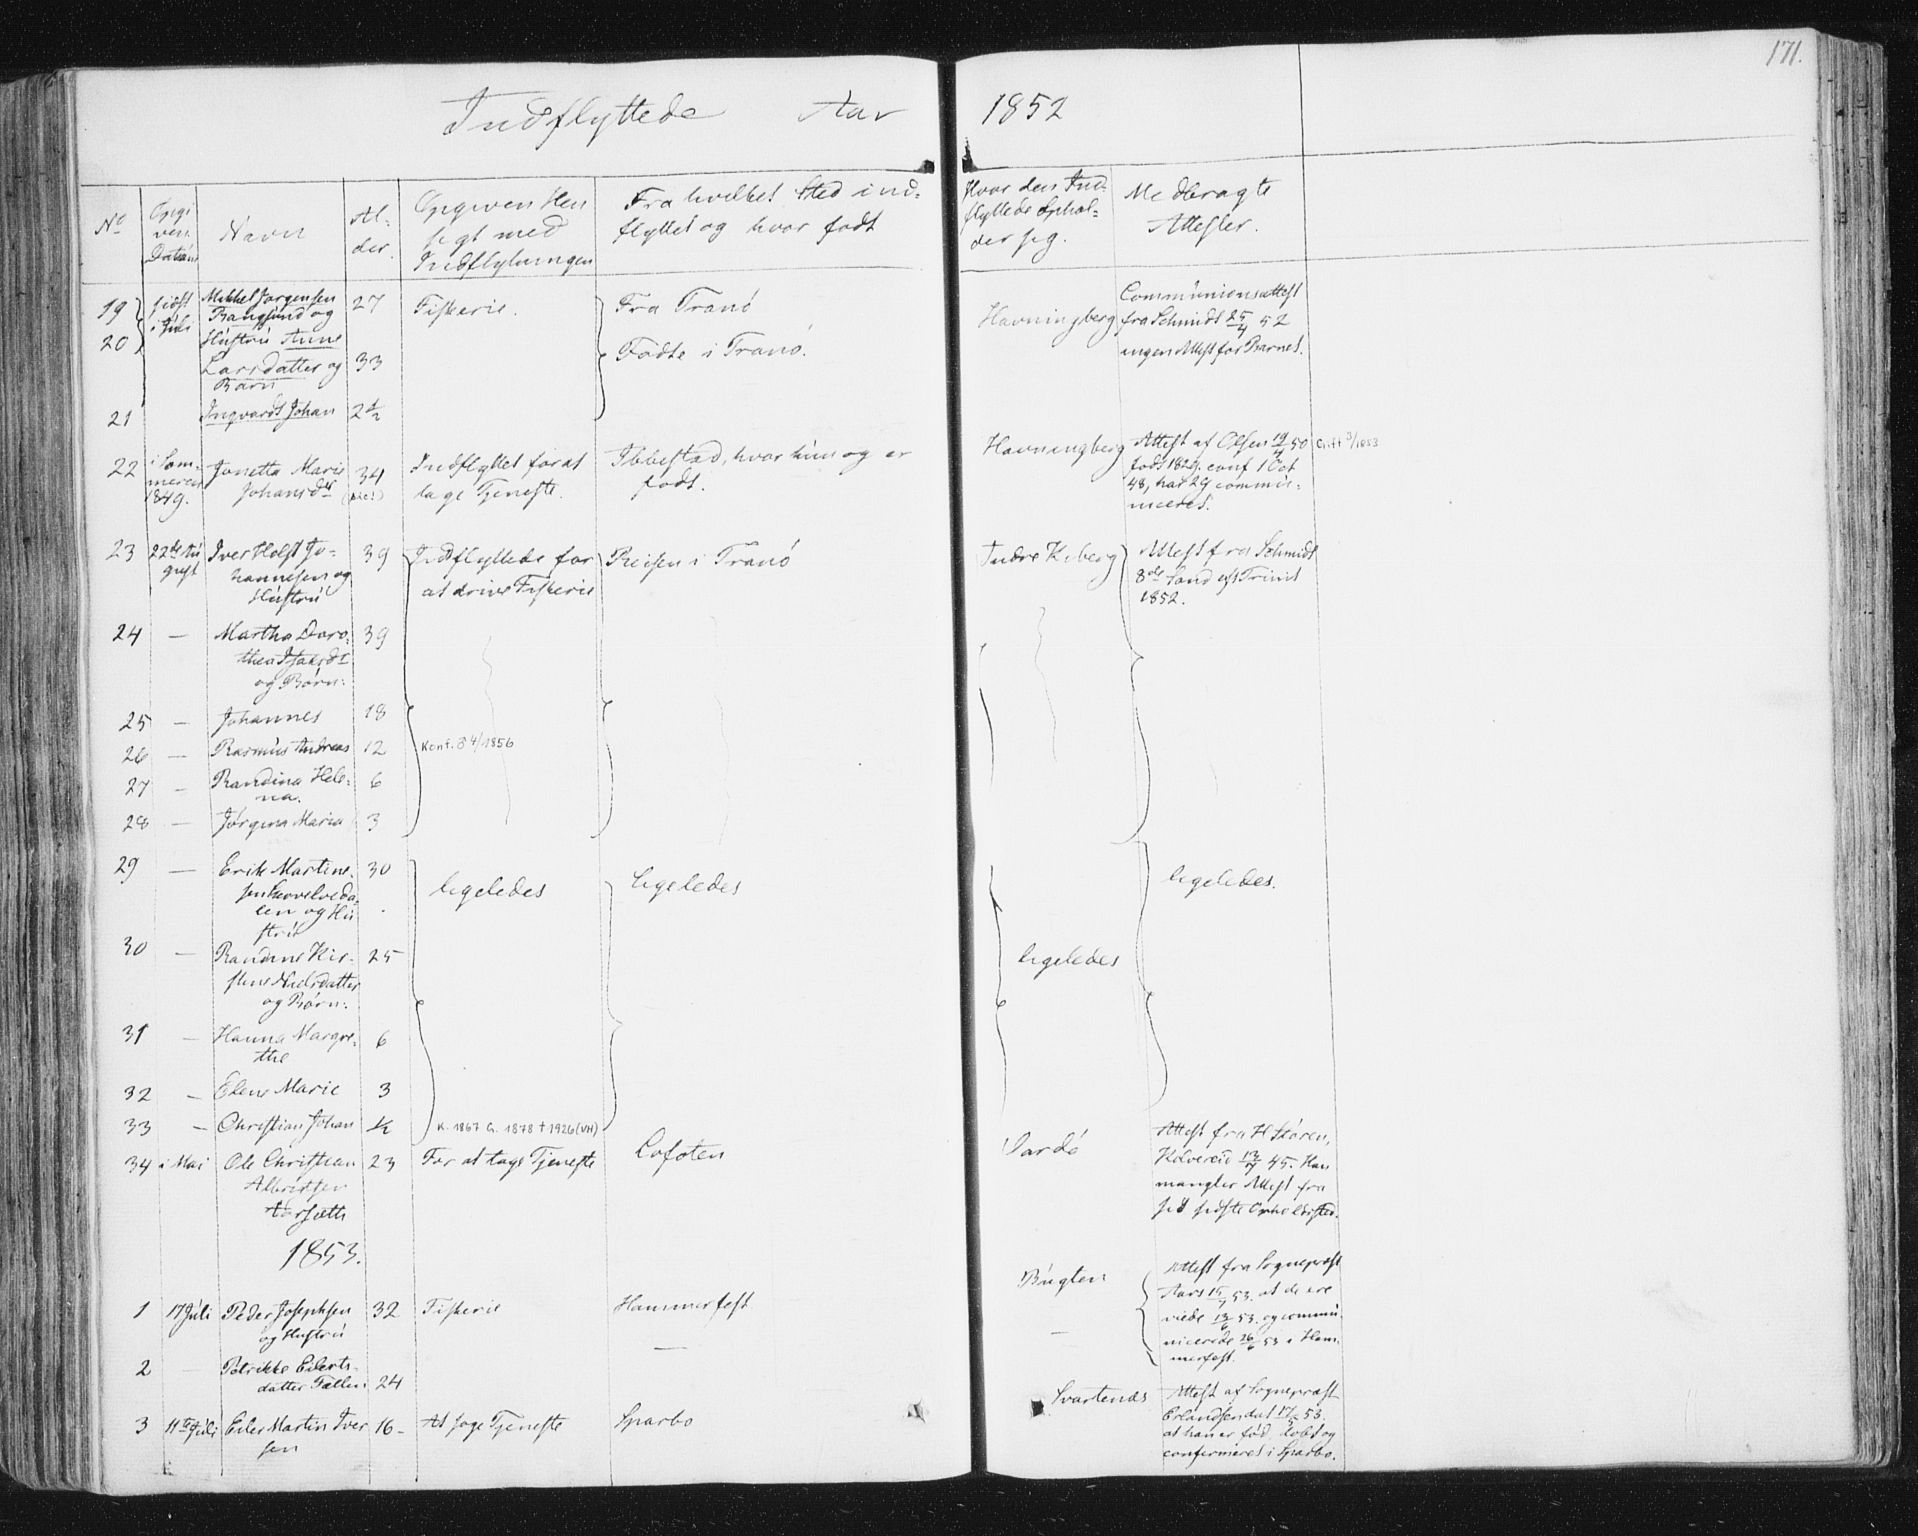 171.
Indflyttede Aar 1852
No
Opgi
ven
Datum
Navn
Al-
der.
Opgiven Hen
sigt med
Indflytningen
Fra hvilket Sted ind-
flyttet og hvor født
Hvor den Ind-
flyttede Ophol-
der sig.
Medbragte
Attester.
19
20
sidst
i Juli
Mikkel Jørgensen
Rangsund og
Hustru Anne
Larsdatter og
Barn
27
33
Fiskerie.
Fra Tranö
Fødte i Tranö.
Havningberg
Communionsattest
fra Schmidt 25/4 52
ingen Attest for Barnet.
21
Ingvardt Johan
2½
22
i Som-
meren
1849.
Jonetta Marie
Johansdr
34
Indflyttet for at
tage Tjeneste.
Ibbestad, hvor hun og er
født.
Havningberg
Attest af Olsen 19/4 50
født 1829. conf 1 Oct
48, har 29 commu-
niceret.
Gift 3/1853
23
22de Au
gust
Iver Holst Jo-
hannesen og
Hustru
39
Indflyttede for
at drive Fiskerie
Reisen i Tranö
Indre Kiberg
Attest fra Schmidt
8de Sønd eft Trinit
1852.
24
—
Martha Doro-
thea Isaksd
og Børn:
39
25
—
Johannes
18
26
—
Rasmus Andreas
12
Konf. 8 4/1856
27
—
Randina Hele-
na.
6
28
—
Jørgina Maria
3
29
—
Erik Martine-
sen
len og Hu
stru
30
ligeledes
ligeledes
ligeledes
ligeledes.
30
—
Randine Kir-
stine Nielsdatter
og Børn:
25
31
—
Hanna Margre-
the
6
32
—
Elene Marie
3
33
—
Christian Johan
½
K. 1867 G. 1878 † 1926 (VH)
34
i Mai
Ole Christian
Albrigtsen
Aarsæth
23
For at tage Tjeneste
Lofoten
Vardö
Attest fra H Støren,
Kolvereid 13/7 45. Han
mangler Attest fra
sit sidste Opholdssted.
1853.
1
17 Juli
Peder Josephsen
og Hustru
32
Fiskerie
Hammerfest
Bugten
Attest fra Sognepræst
Aars 15/7 53. at de ere
viede 13/6 53. og commu-
nicerede 26/6 53 i Ham-
merfest.
2
Petrikke Eilerts-
datter Fallen
24
—
—
3
11te Juli
Eiler Martin Iver
sen
16
At søge Tjeneste
Sparbo
Svartenæs
Attest af Sognepræst
Erlandsen dat 17/5 53.
at han er fød, døbt og
confirmeret i Sparbo.